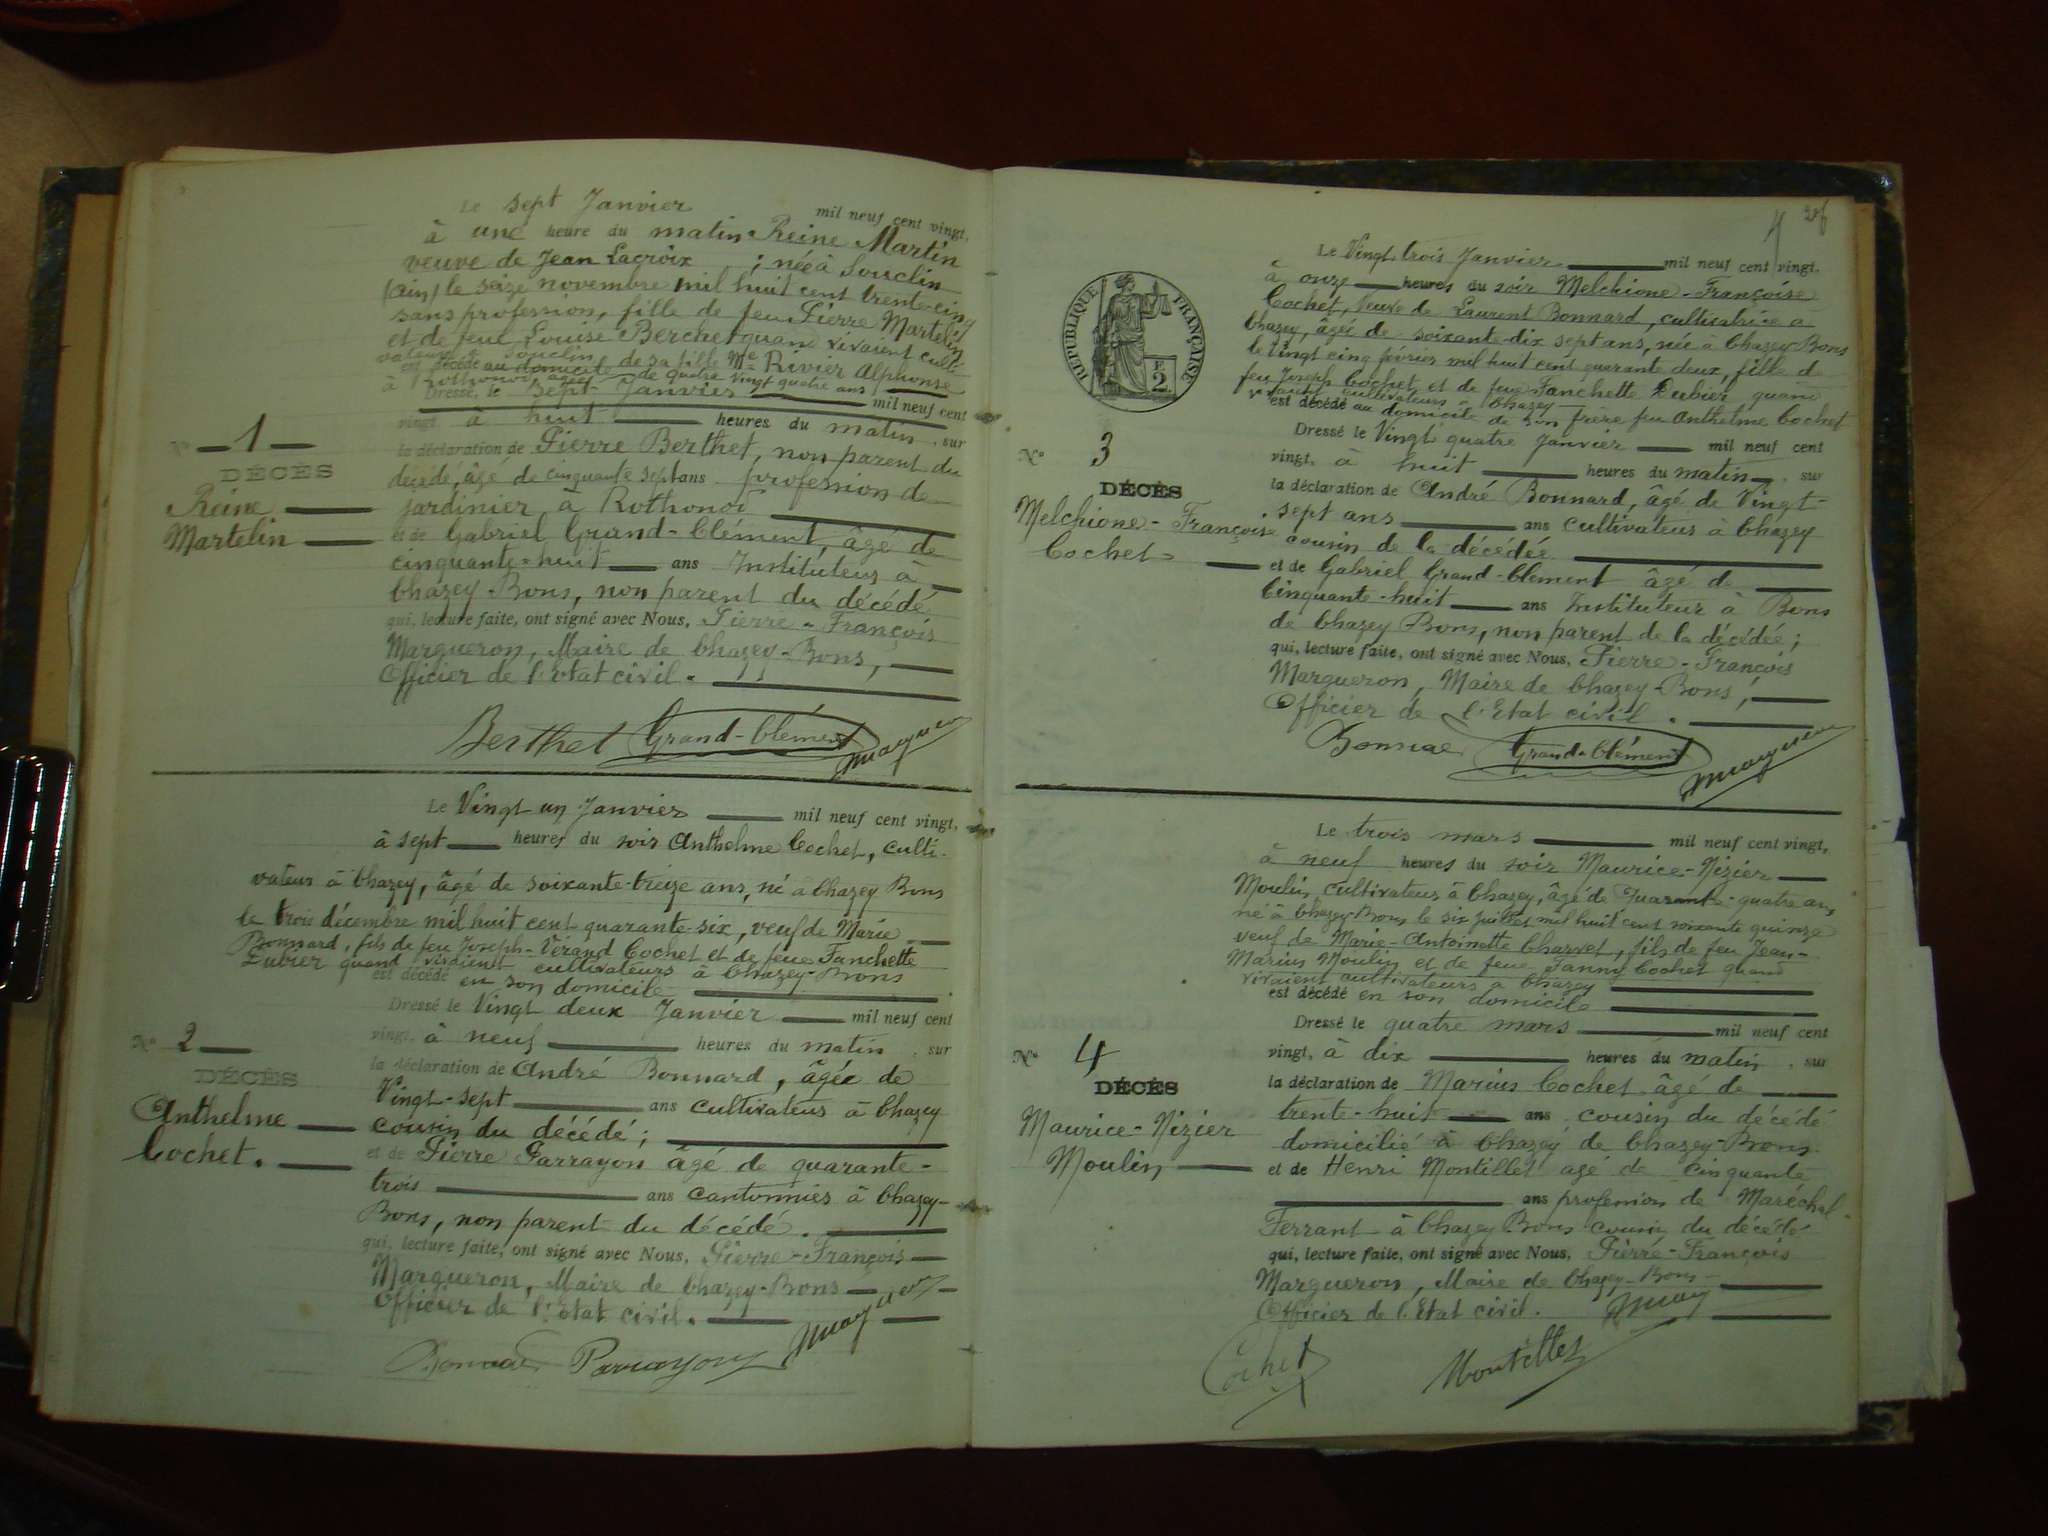 Le sept Janvier mil neuf cent vingt,
à une heure du matin Reine Martin
veuve de Jean Lacroix ; née à Souclin
(Ain) le seize novembre mil huit cent trente-cinq
sans profession, fille de feu Pierre Martelin
et de feue Louise Berchet quand vivaient culti-
vateurs à Souclin
est décédé au domicile de sa fille Me Rivier Alphonse
à Rothonod âgée de quatre vingt quatre ans
Dressé, le sept Janvier mil neuf cent
vingt à huit heures du matin, sur
la déclaration de Pierre Berthet, non parent du
décédé, âgé de cinquante sept ans profession de
jardinier à Rothonod
et de Gabriel Grand-Clément, âgé de
cinquante-huit ans Instituteur à
Chazey-Bons, non parent du décédé
qui, lecture faite, ont signé avec Nous, Pierre-François
Margueron, Maire de Chazey-Bons,
Officier de l'Etat civil.
N° 1
DÉCÈS
Reine
Martelin
Berthet Grand-Clément Margueron
Le Vingt un Janvier mil neuf cent vingt,
à sept heures du soir Anthelme Cochet, culti-
vateur à Chazey, âgé de soixante-treize ans, né à Chazey Bons
le trois décembre mil huit cent quarante-six, veuf de Marie
Bonnard, fils de feu Joseph-Vérand Cochet et de feue Fanchette
Dubier quand vivaient cultivateurs à Chazey-Bons
est décédé en son domicile
Dressé le Vingt deux Janvier mil neuf cent
vingt, à neuf heures du matin, sur
la déclaration de André Bonnard, âgée de
Vingt-sept ans cultivateur à Chazey
cousin du décédé ;
et de Pierre Parrayon âgé de quarante-
trois ans cantonnier à Chazey-
Bons, non parent du décédé.
qui, lecture faite, ont signé avec Nous, Pierre-François
Margueron, Maire de Chazey-Bons
Officier de l'Etat civil.
N° 2
DÉCÈS
Anthelme
Cochet.
Bonnard Parrayon Margueron
206
RÉPUBLIQUE FRANÇAISE
E
2
Le Vingt trois Janvier mil neuf cent vingt,
à onze heures du soir Melchione-Françoise
Cochet, Veuve de Laurent Bonnard, cultivatrice à
Chazey, âgée de soixante-dix sept ans, née à Chazey Bons
le Vingt cinq février mil huit cent quarante deux, fille de
feu Joseph Cochet et de feue Fanchette Dubier quand
vivaient cultivateurs à Chazey
est décédé au domicile de son frère feu Anthelme Cochet
Dressé le Vingt quatre Janvier mil neuf cent
vingt, à huit heures du matin, sur
la déclaration de André Bonnard, âgé de Vingt-
sept ans ans cultivateur à Chazey
cousin de la décédée
et de Gabriel Grand-Clément âgé de
Cinquante-huit ans Instituteur à Bons
de Chazey Bons, non parent de la décédée ;
qui, lecture faite, ont signé avec Nous, Pierre-François
Margueron, Maire de Chazey-Bons,
Officier de l'Etat civil.
N° 3
DÉCÈS
Melchione-Françoise
Cochet
Bonnard Grand-Clément Margueron
Le trois mars mil neuf cent vingt,
à neuf heures du soir Maurice-Nizier
Moulin, cultivateur à Chazey, âgé de Quarante-quatre ans,
né à Chazey-Bons le six Juillet mil huit cent soixante quinze
veuf de Marie-Antoinette Charvet, fils de feu Jean-
Marius Moulin et de feue Fanny Cochet quand
vivaient cultivateurs à Chazey
est décédé en son domicile
Dressé le quatre mars mil neuf cent
vingt, à dix heures du matin, sur
la déclaration de Marius Cochet âgé de
trente-huit ans cousin du décédé
domicilié à Chazey de Chazey-Bons
et de Henri Montillet agé de Cinquante
ans profession de Maréchal
Ferrant à Chazey Bons cousin du décédé
qui, lecture faite, ont signé avec Nous, Pierre-François
Margueron, Maire de Chazey-Bons
Officier de l'Etat civil.
N° 4
DÉCÈS
Maurice-Nizier
Moulin
Cochet Montillet